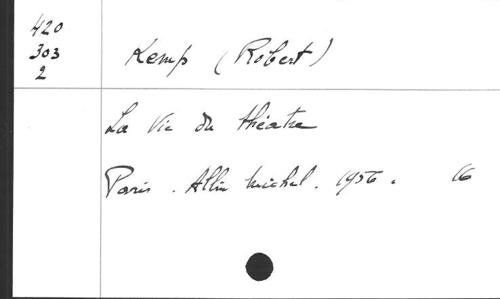 420
303
2
Kemp (Robert)
La Vie du théatre
Paris. Albin Michel. 1956. 16